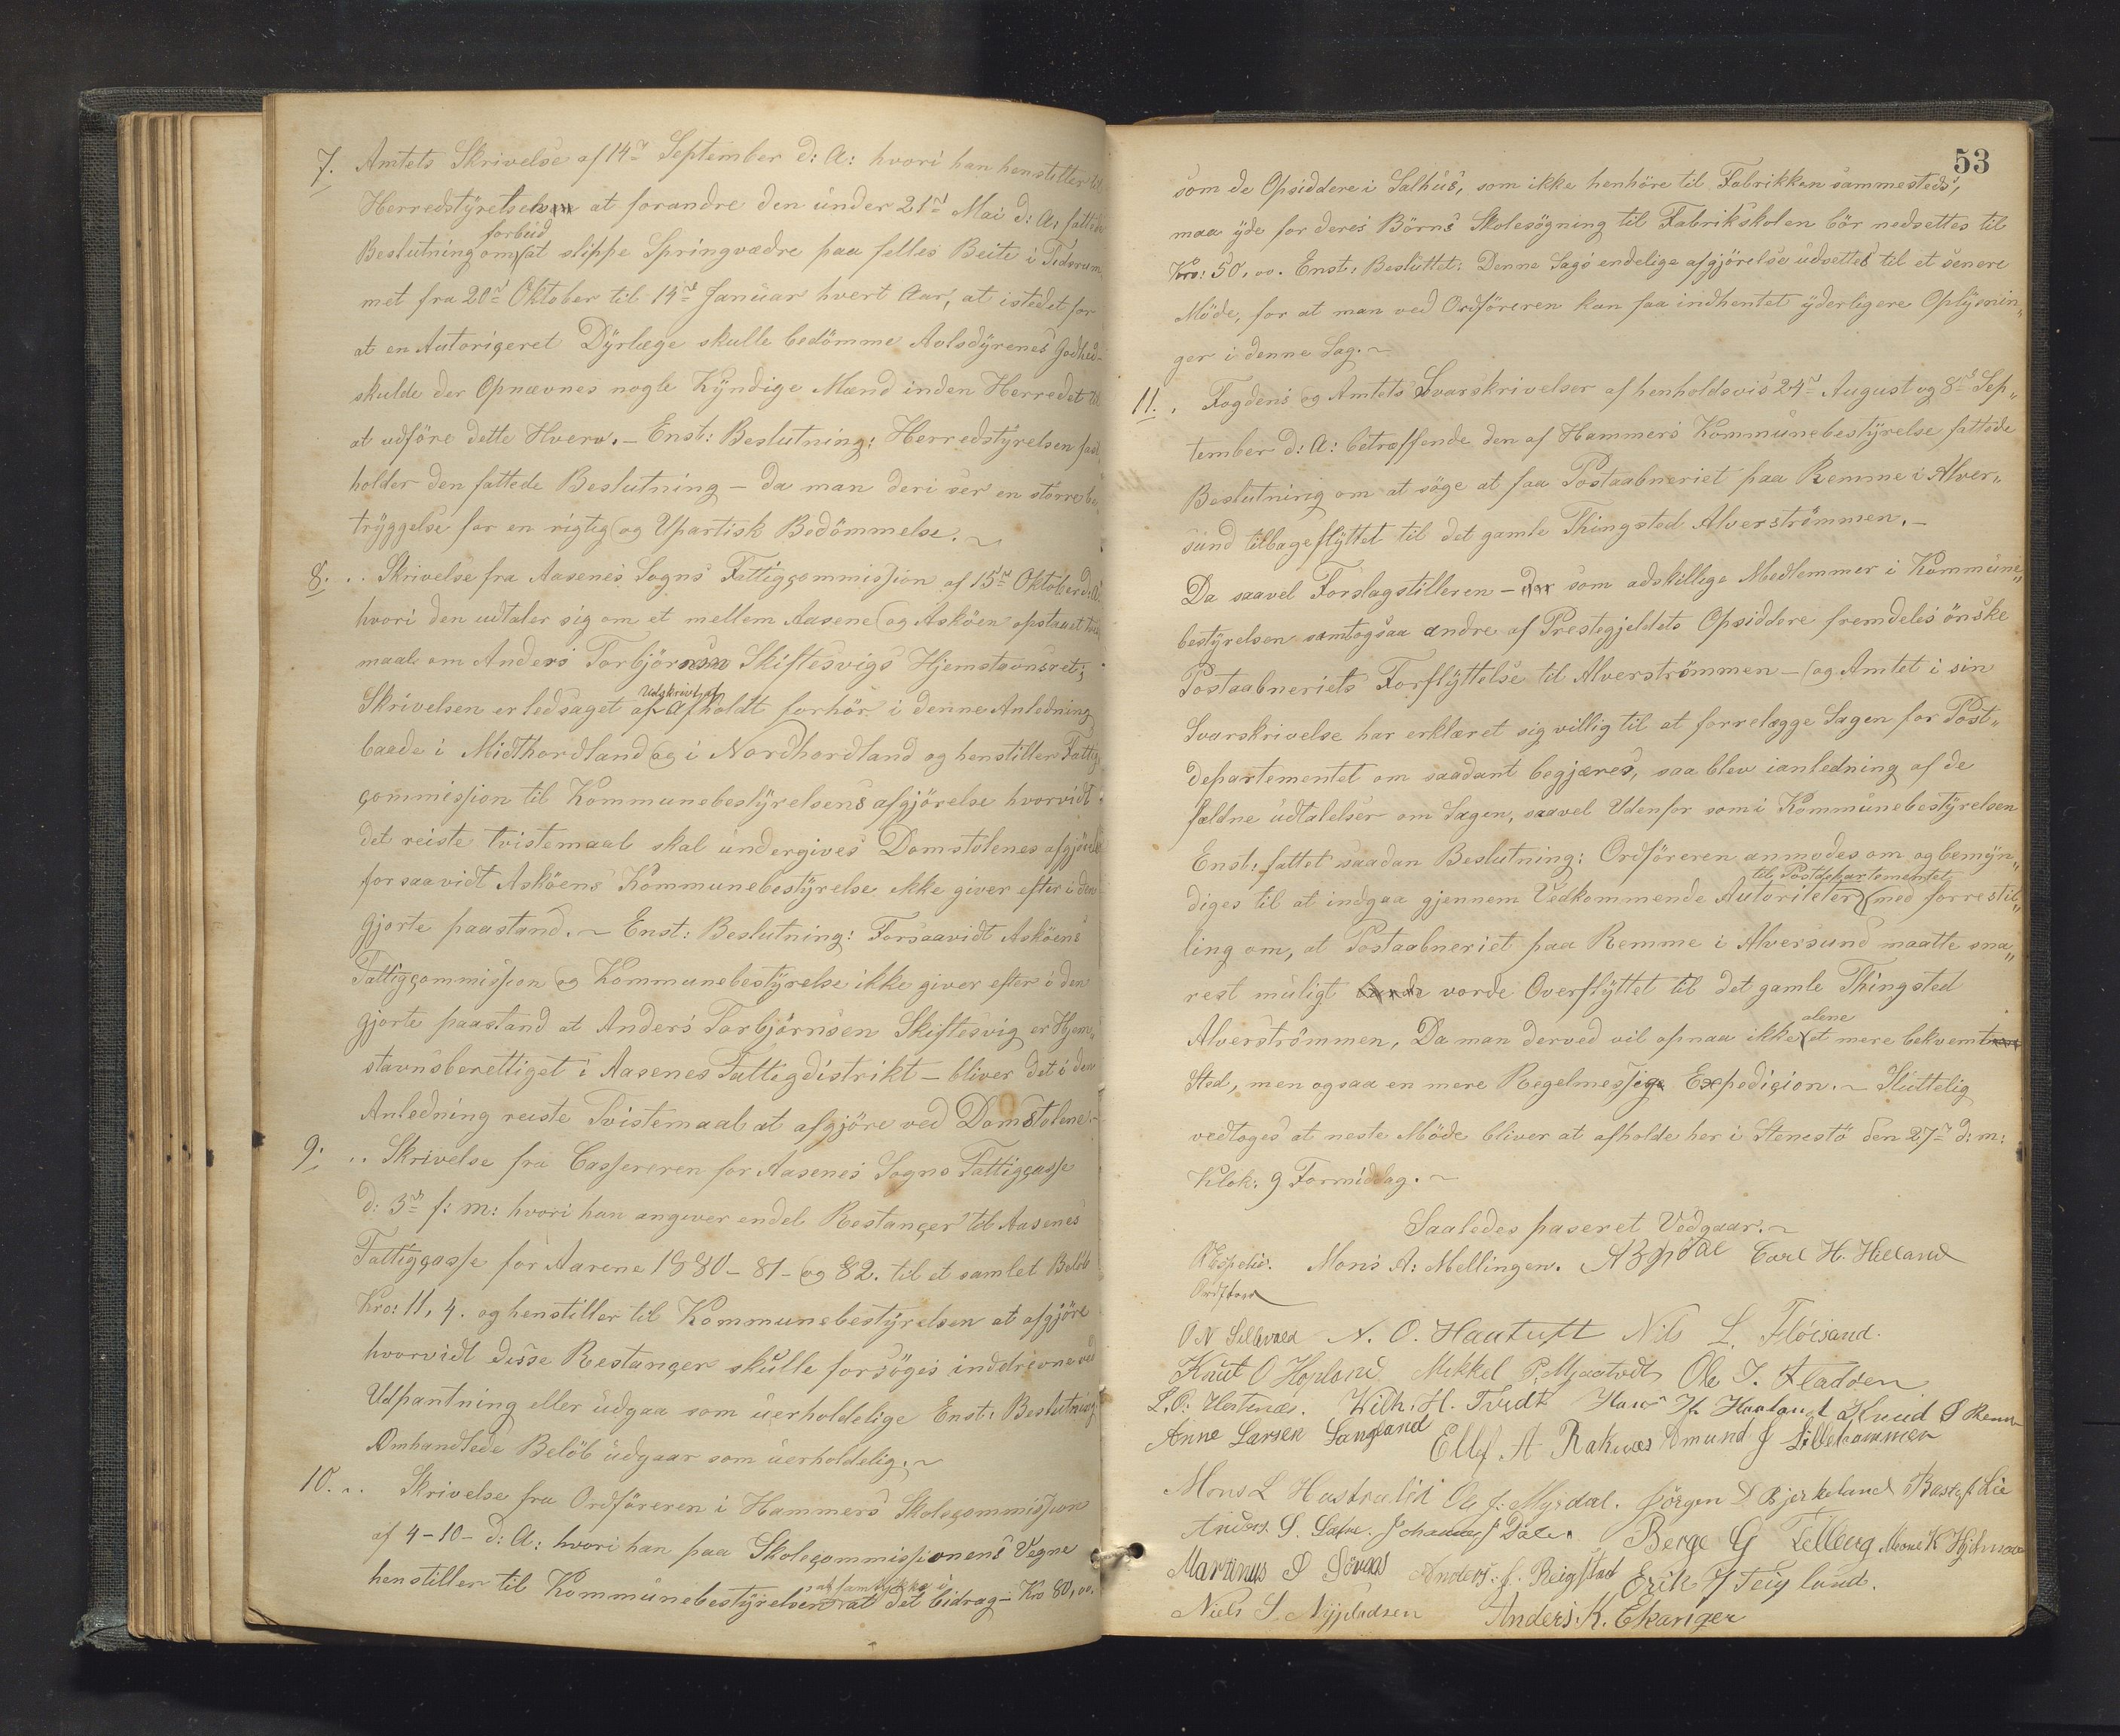 7. Amtets Skrivelse af 14de September d: A: hvori han henstiller til
Herredstyrelsen at forandre den under 21de Mai d: A: fattede
forbud
Beslutning om at slippe Springvædre paa felles Beite i Tidsrum
met fra 20de Oktober til 14de Januar hvert Aar, at istedet for
at en Autoriseret Dyrlæge skulle bedömme Avlsdyrenes Godhed
skulde der Opnævnes nogle Kyndige Mænd inden Herredet til
at udföre dette Hverv. – Enst: Beslutning: Herredstyrelsen fast
holder den fattede Beslutning – da man deri ser en större be
tryggelse for en rigtig og Upartisk Bedömmelse. ~
8. .. Skrivelse fra Aasenes Sogns Fattigcommission af 15de Oktober d: A:
hvori den udtaler sig om et mellem Aasene og Asköen opstaaet tviste
maal om Anders Torbjörnsen Skiftesvigs Hjemstavnsret;
Udskrivt af
Skrivelsen er ledsaget af afholdt forhör i denne Anledning
baade i Midthordland og i Nordhordland og henstiller Fattig
commission til Kommunebestyrelsens afgjörelse hvorvidt
det reiste tvistemaal skal undergives Domstolenes afgjörelse
forsaavidt Asköens Kommunebestyrelse ikke giver efter i den
gjorte paastand. ~ Enst: Beslutning: Forsaavidt Asköens
Fattigcommission og Kommunebestyrelse ikke giver efter i den
gjorte paastand at Anders Torbjörnsen Skiftesvig er Hjem„
stavnsberettiget i Aasenes Fattigdistrikt – bliver det i den
Anledning reiste Tvistemaal at afgjöre ved Domstolene. –
9. .. Skrivelse fra Cassereren for Aasenes Sogns Fattigcasse
d: 3de f: m: hvori han angiver endel Restanser til Aasenes
Fattigcasse for Aarene 1880 – 81 – og 82. til et samlet Belöb
Kro: 11,4. og henstiller til Kommunebestyrelsen at afgjöre
hvorvidt disse Restancer skulle forsöges inddrevne ved
Udpantning eller udgaa som uerholdelige Enst: Beslutning
Omhandlede Belöb udgaar som uerholdelig. ~
10. .. Skrivelse fra Ordföreren i Hammers Skolecommission
af 4 – 10 – d: A: hvori han paa Skolecommissionens Vegne
at samtykke i
henstiller til Kommunebestyrelsen at det bidrag – Kro 80,00.
53
som de Opsiddere i Salhus, som ikke henhöre til Fabrikken sammesteds,
maa yde for deres Börns Skolesögning til Fabrikskolen bör nedsettes til
Kro: 50,00. Enst: Besluttet: Denne Sags endelige afgjörelse udsettes til et senere
Möde, for at man ved Ordföreren kan faa indhentet yderligere Oplysnin„
ger i denne Sag. ~
11. . Fogdens og Amtets Svarskrivelser af henholdsvis 24de August og 8de Sep„
tember d: A: betræffende den af Hammers Kommunebestyrelse fattede
Beslutning om at söge at faa Postaabneriet paa Remme i Alver„
sund tilbageflyttet til det gamle Thingsted Alverströmmen. –
Da saavel Forslagstilleren – som adskillige Medlemmer i Kommune„
bestyrelsen samt ogsaa andre af Prestegjeldets Opsiddere fremdeles önske
Postaabneriets Forflyttelse til Alverströmmen – og Amtet i sin
Svarskrivelse har erklæret sig villig til at forrelægge Sagen for Post„
departementet om saadant begjæres, saa blev ianledning af de
faldne udtalelser om Sagen, saavel Udenfor som i Kommunebestyrelsen
Enst: fattet saadan Beslutning: Ordföreren anmodes om og bemyn„
til Postdepartementet
diges til at indgaa gjennem Vedkommende Autoriteter med forrestil„
ling om, at Postaabneriet paa Remme i Alversund maatte sna„
rest muligt vorde Overflyttet til det gamle Thingsted
alene
Alverströmmen, Da man derved vil opnaa ikke et mere bekvemt
Sted, men ogsaa en mere Regelmessige Expedicion. ~ Sluttelig
vedtoges at neste Möde bliver at afholde her i Stenestö den 27de d: m:
Klok: 9 Formiddag. ~
Saaledes paseret Vedgaar. ~
Espelid. Mons A: Mellingen. Carl H. Helland
Ordförer
O N N. O. Hautuft Nils L. Flöisand.
Knut O Hopland Mikkel P. Mjaatvedt Ole I. Fladöen
L. O: Hertenæs. Wilh. H. Tvedt Hans H. Haaland Knud S Remme
Anne Larsen Langeland Ellef A Raknæs Amund J Lillehammer
Mons L Hustralid Ole J: Myrdal. Jörgen D Bjerkeland Lie
Anders S. Johannes J Dale. Berge G Felleug Mons K
Martinus S Anders J. Reigstad Erik J Teigland.
Niels S. Nypladsen Anders. K. Ekanger